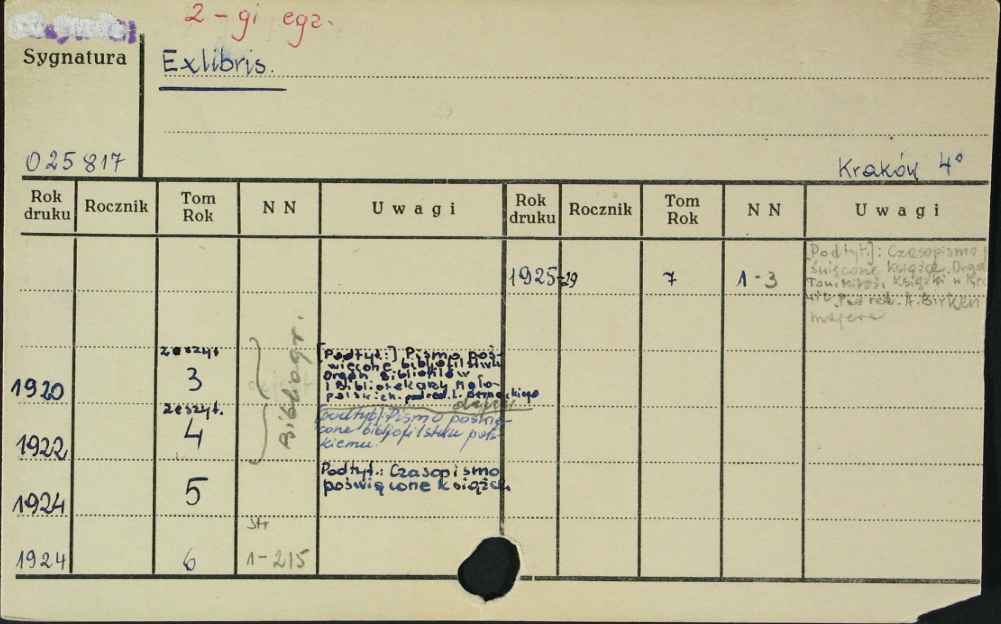 2-gi egz.
Sygnatura
Exlibris.
025817
Kraków 4°
Rok druku Rocznik Tom Rok NN Uwagi Rok druku Rocznik Tom Rok NN Uwagi
1925-29 7 1-3 [Podtyt.]: Czasopismo
święcone książce.
Tow. Miłośn. Książki w
Pod red. A. Birken
majera
Bibliogr.
1920 zeszyt 3 [Podtyt.:] Pismo poś-
więcone bibliofilstwu
Organ Bibliofilów
i Bibliotekarzy Mało-
polskich. pod red. L. Bernackiego
1922 zeszyt. 4 [podtyt.] Pismo poświę-
cone bibljofilstwu pols-
kiemu
1924 5 Podtyt.: Czasopismo
poświęcone książce.
str
1924 6 1-215